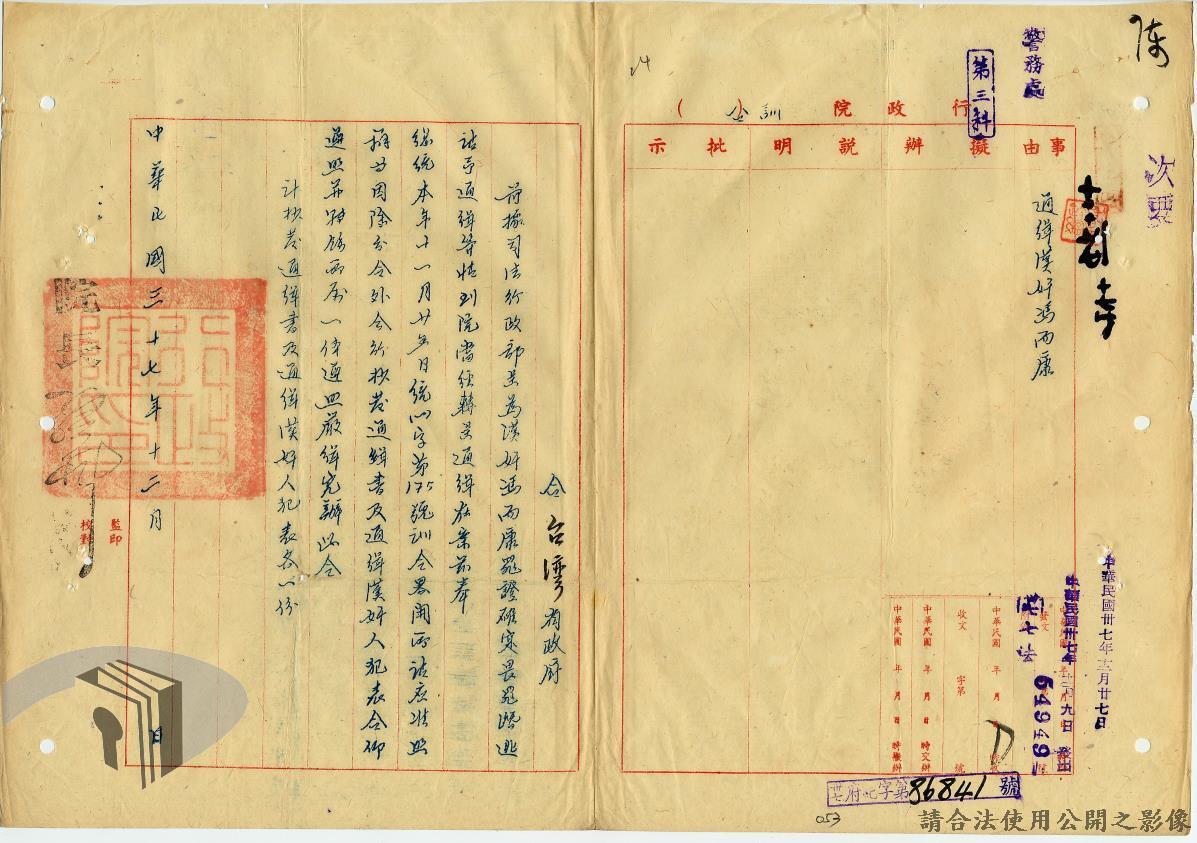 警務處
第三科
次要
行政院（訓令）
事由
擬辦
說明
批示
通緝漢奸馮雨康
中華民國卅七年十二月廿七日
中華民國卅七年十二月九日發出
發文
七法
54949
收文 字第 號
中華民國 年 月 日 時交辦
中華民國 年 月 日 時擬辦
卅七府 字第86841號
令台灣省政府
前據司法行政部呈為漢奸馮雨康罪證確實畏罪潛逃
請予通緝等情到院當經轉呈通緝在案茲奉
總統本年十一月廿 日統 字第175號訓令畧開所請應准照
辦等因除分令外合行抄發通緝書及通緝漢奸人犯表令仰
遵照并轉飭所屬一体遵照嚴緝究辦此令
計抄發通緝書及通緝漢奸人犯表各一份
中華民國三十七年十二月 日
院長
監印
校對
053
請合法使用公開之影像